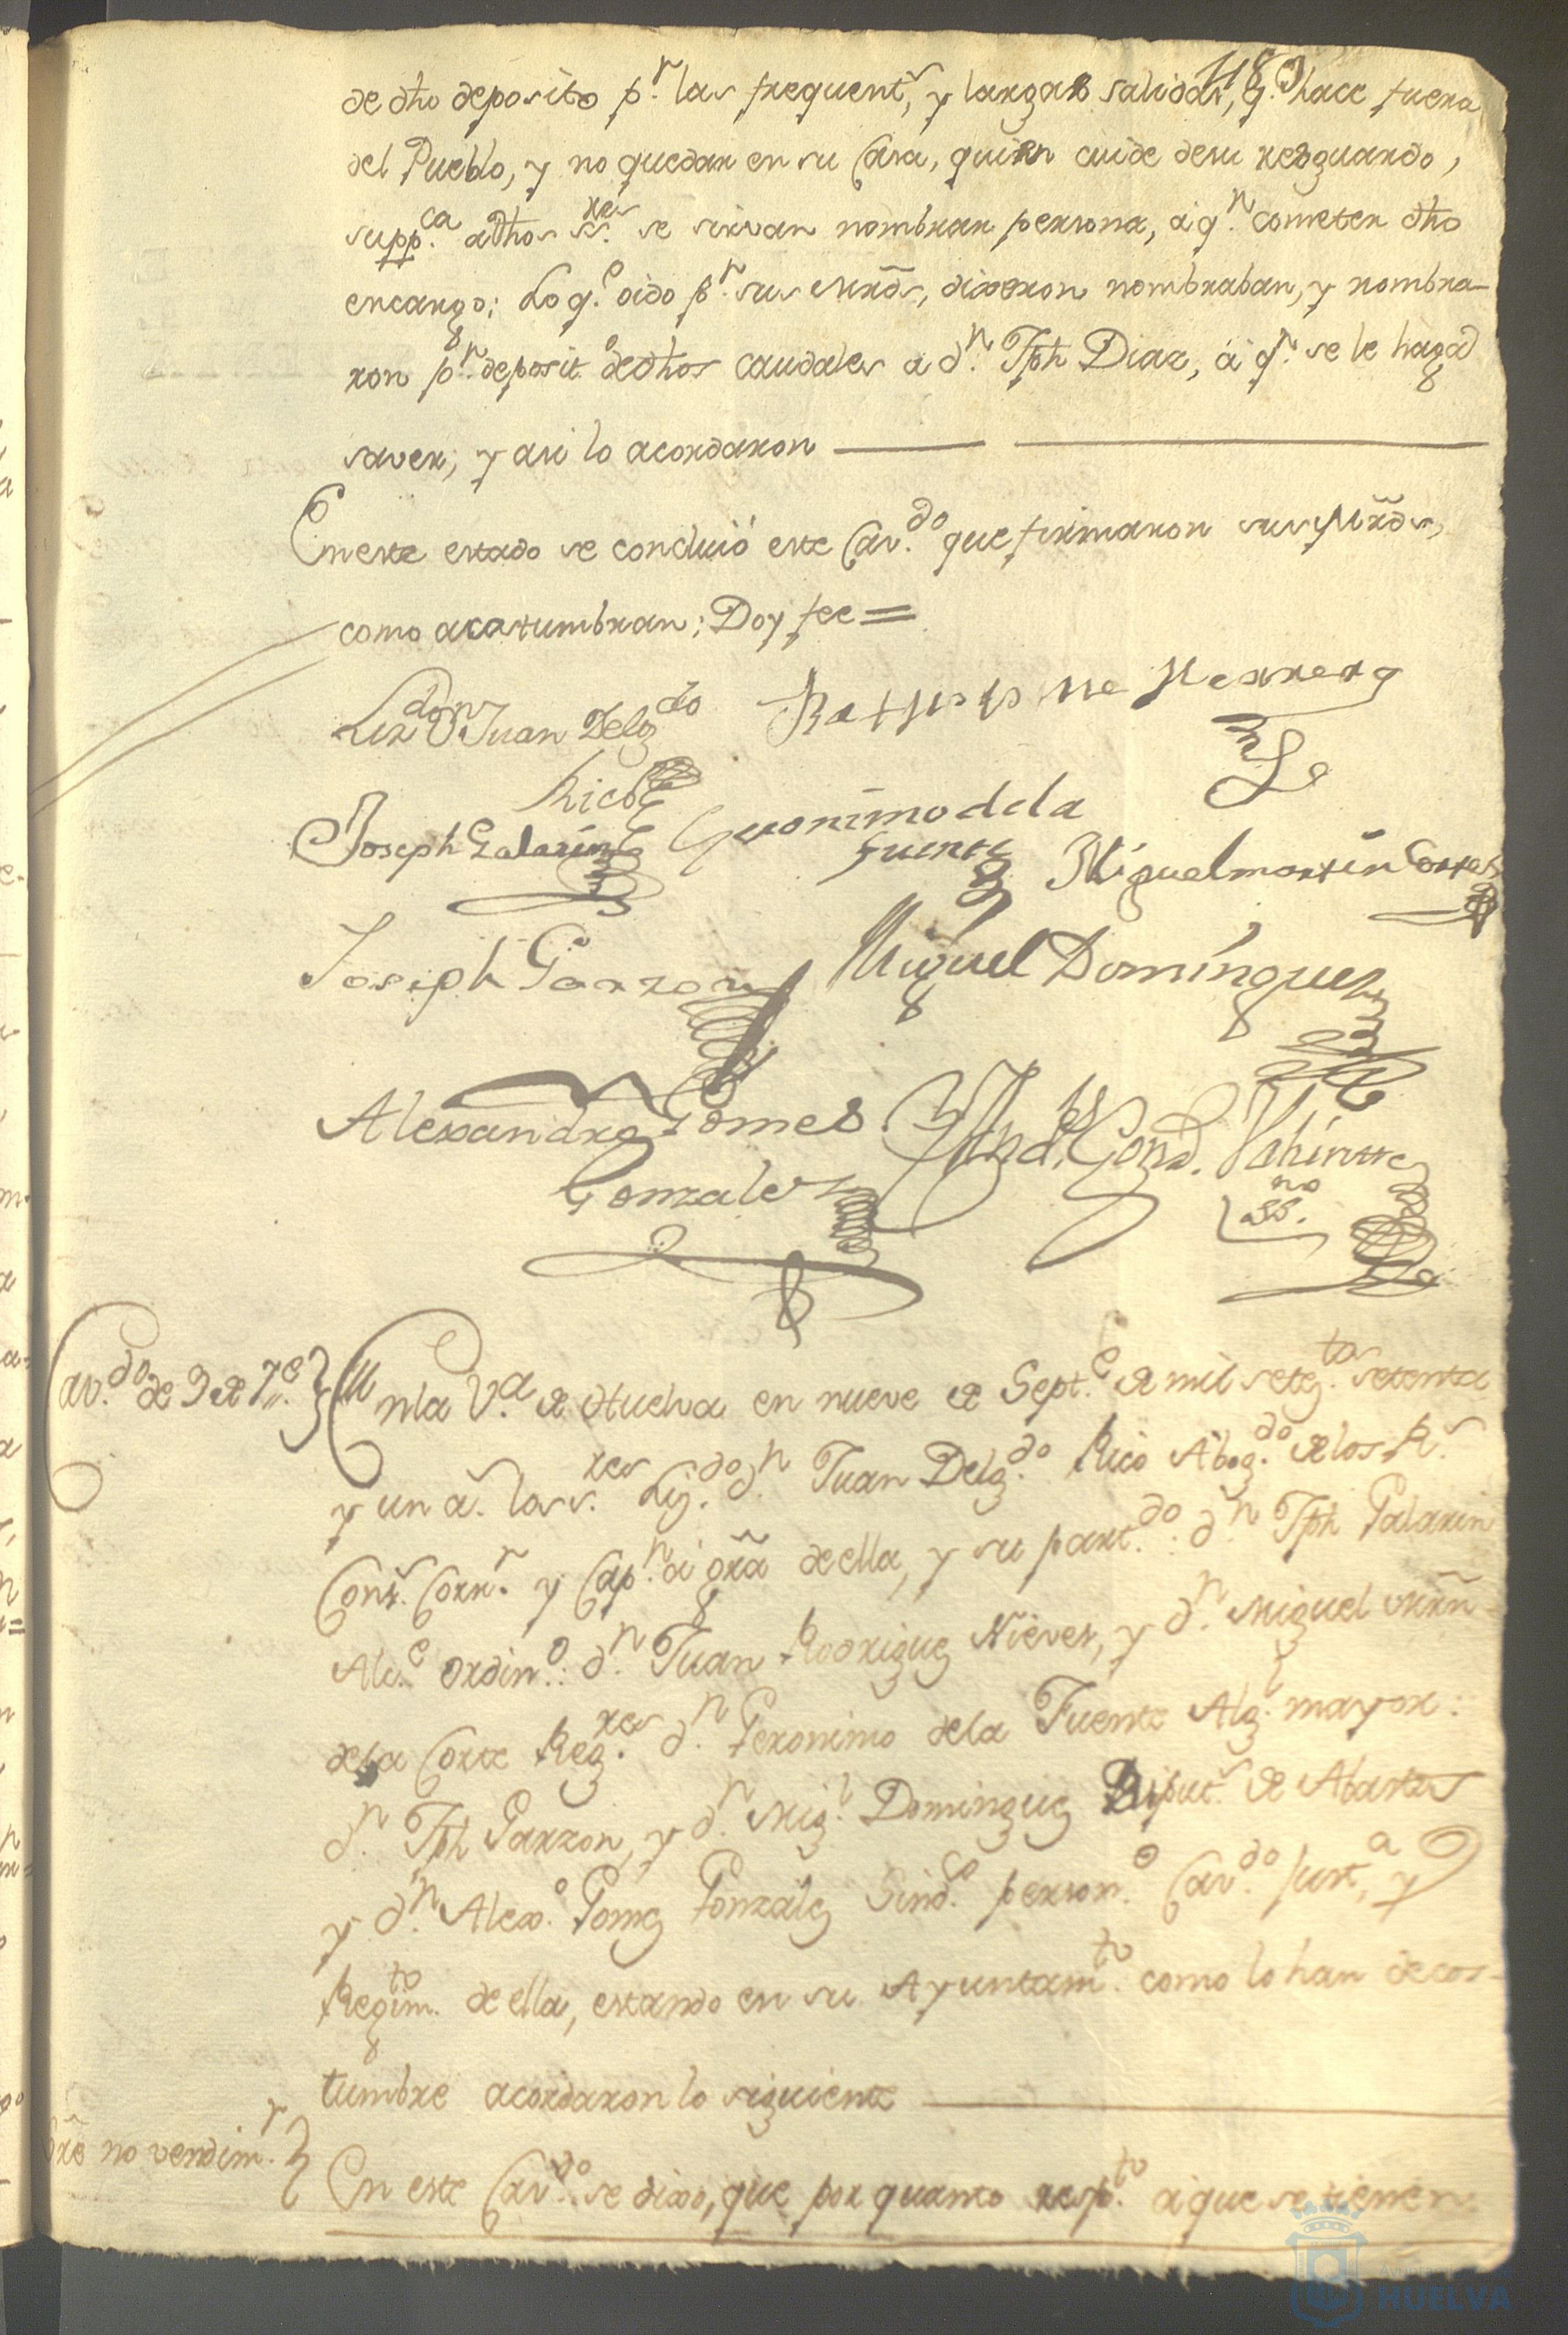 48
de dho deposito p.r las frequent.s, y largas salidas, q.e hace fuera
del Pueblo, y no quedar en su Casa, quien cuide desu resguardo,
supp.ca adhos S.res se sirvan nombrar persona, á q.n cometer dho
encargo; Lo q.e oido p.r sus Mrds, dixeron nombraban, y nombra-
ron p.r deposit.o dedhos caudales a d.n Jph Diaz, á q.n se le haga
saver, y asi lo acordaron
Eneste estado se concluió este Cav.do que firmaron sus Mrds,
como acostumbran; Doy fee =
Liz.do don Juan Delg.do
Rico
Herrera
Joseph Galarin
Geronimo dela
Fuente
Miguel martin Cortes
Joseph Garzon
Miguel Dominguez
Alexandro Gomes
Gonzales
Cav.do de 9 de 7.e
Enla V.a de Huelva en nueve de Sept.e de mil setez.tos setenta
y un a.s los s.res Liz.do d.n Juan Delg.do Rico Abog.do delos R.s
Cons.s Corr.r y Cap.n á gra de ella, y su part.do: d.n Jph Galarin
Alc.e ordin.o: d.n Juan Rodriguez Nieves, y d.n Miguel Mrn
dela Corte Reg.res d.n Geronimo dela Fuente Alg.l mayor:
d.n Jph Garzon, y d.n Mig.l Dominguez Diput.s de Abastos
y d.n Alex.o Gomez Gonzalez Sind.co person.o Cav.do Just.a, y
Regim.to de ella, estando en su Ayuntam.to como lo han decos-
tumbre acordaron lo siguiente
no vendim.r
En este Cav.do se dixo, que por quanto resp.to á que se tienen
HUELVA